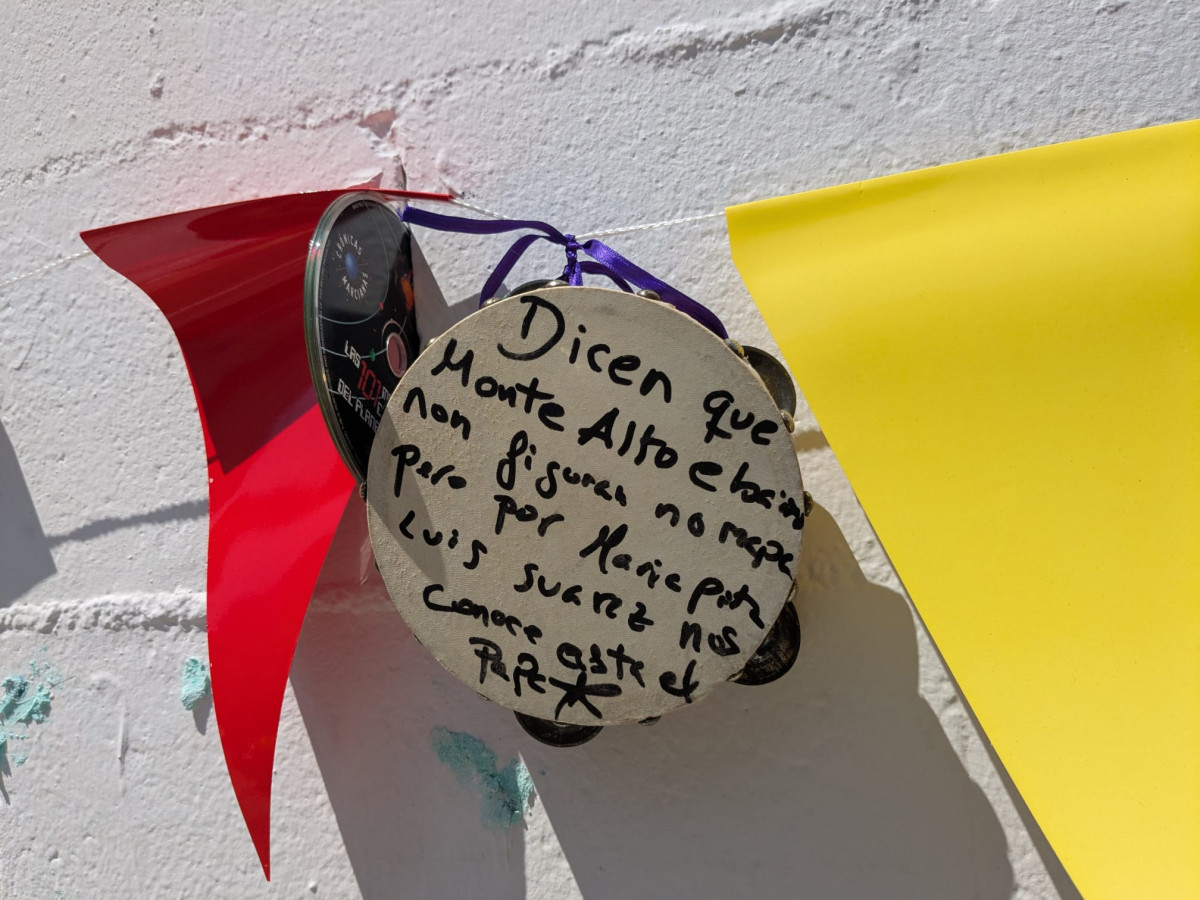 CRÓNICAS
MARCIANAS
LAS 101
DEL PLANE
Dicen que
Monte Alto e bairro
non figuran no mapa
pero por Maria pita
Luis suarez nos
conoce asta el
Papa